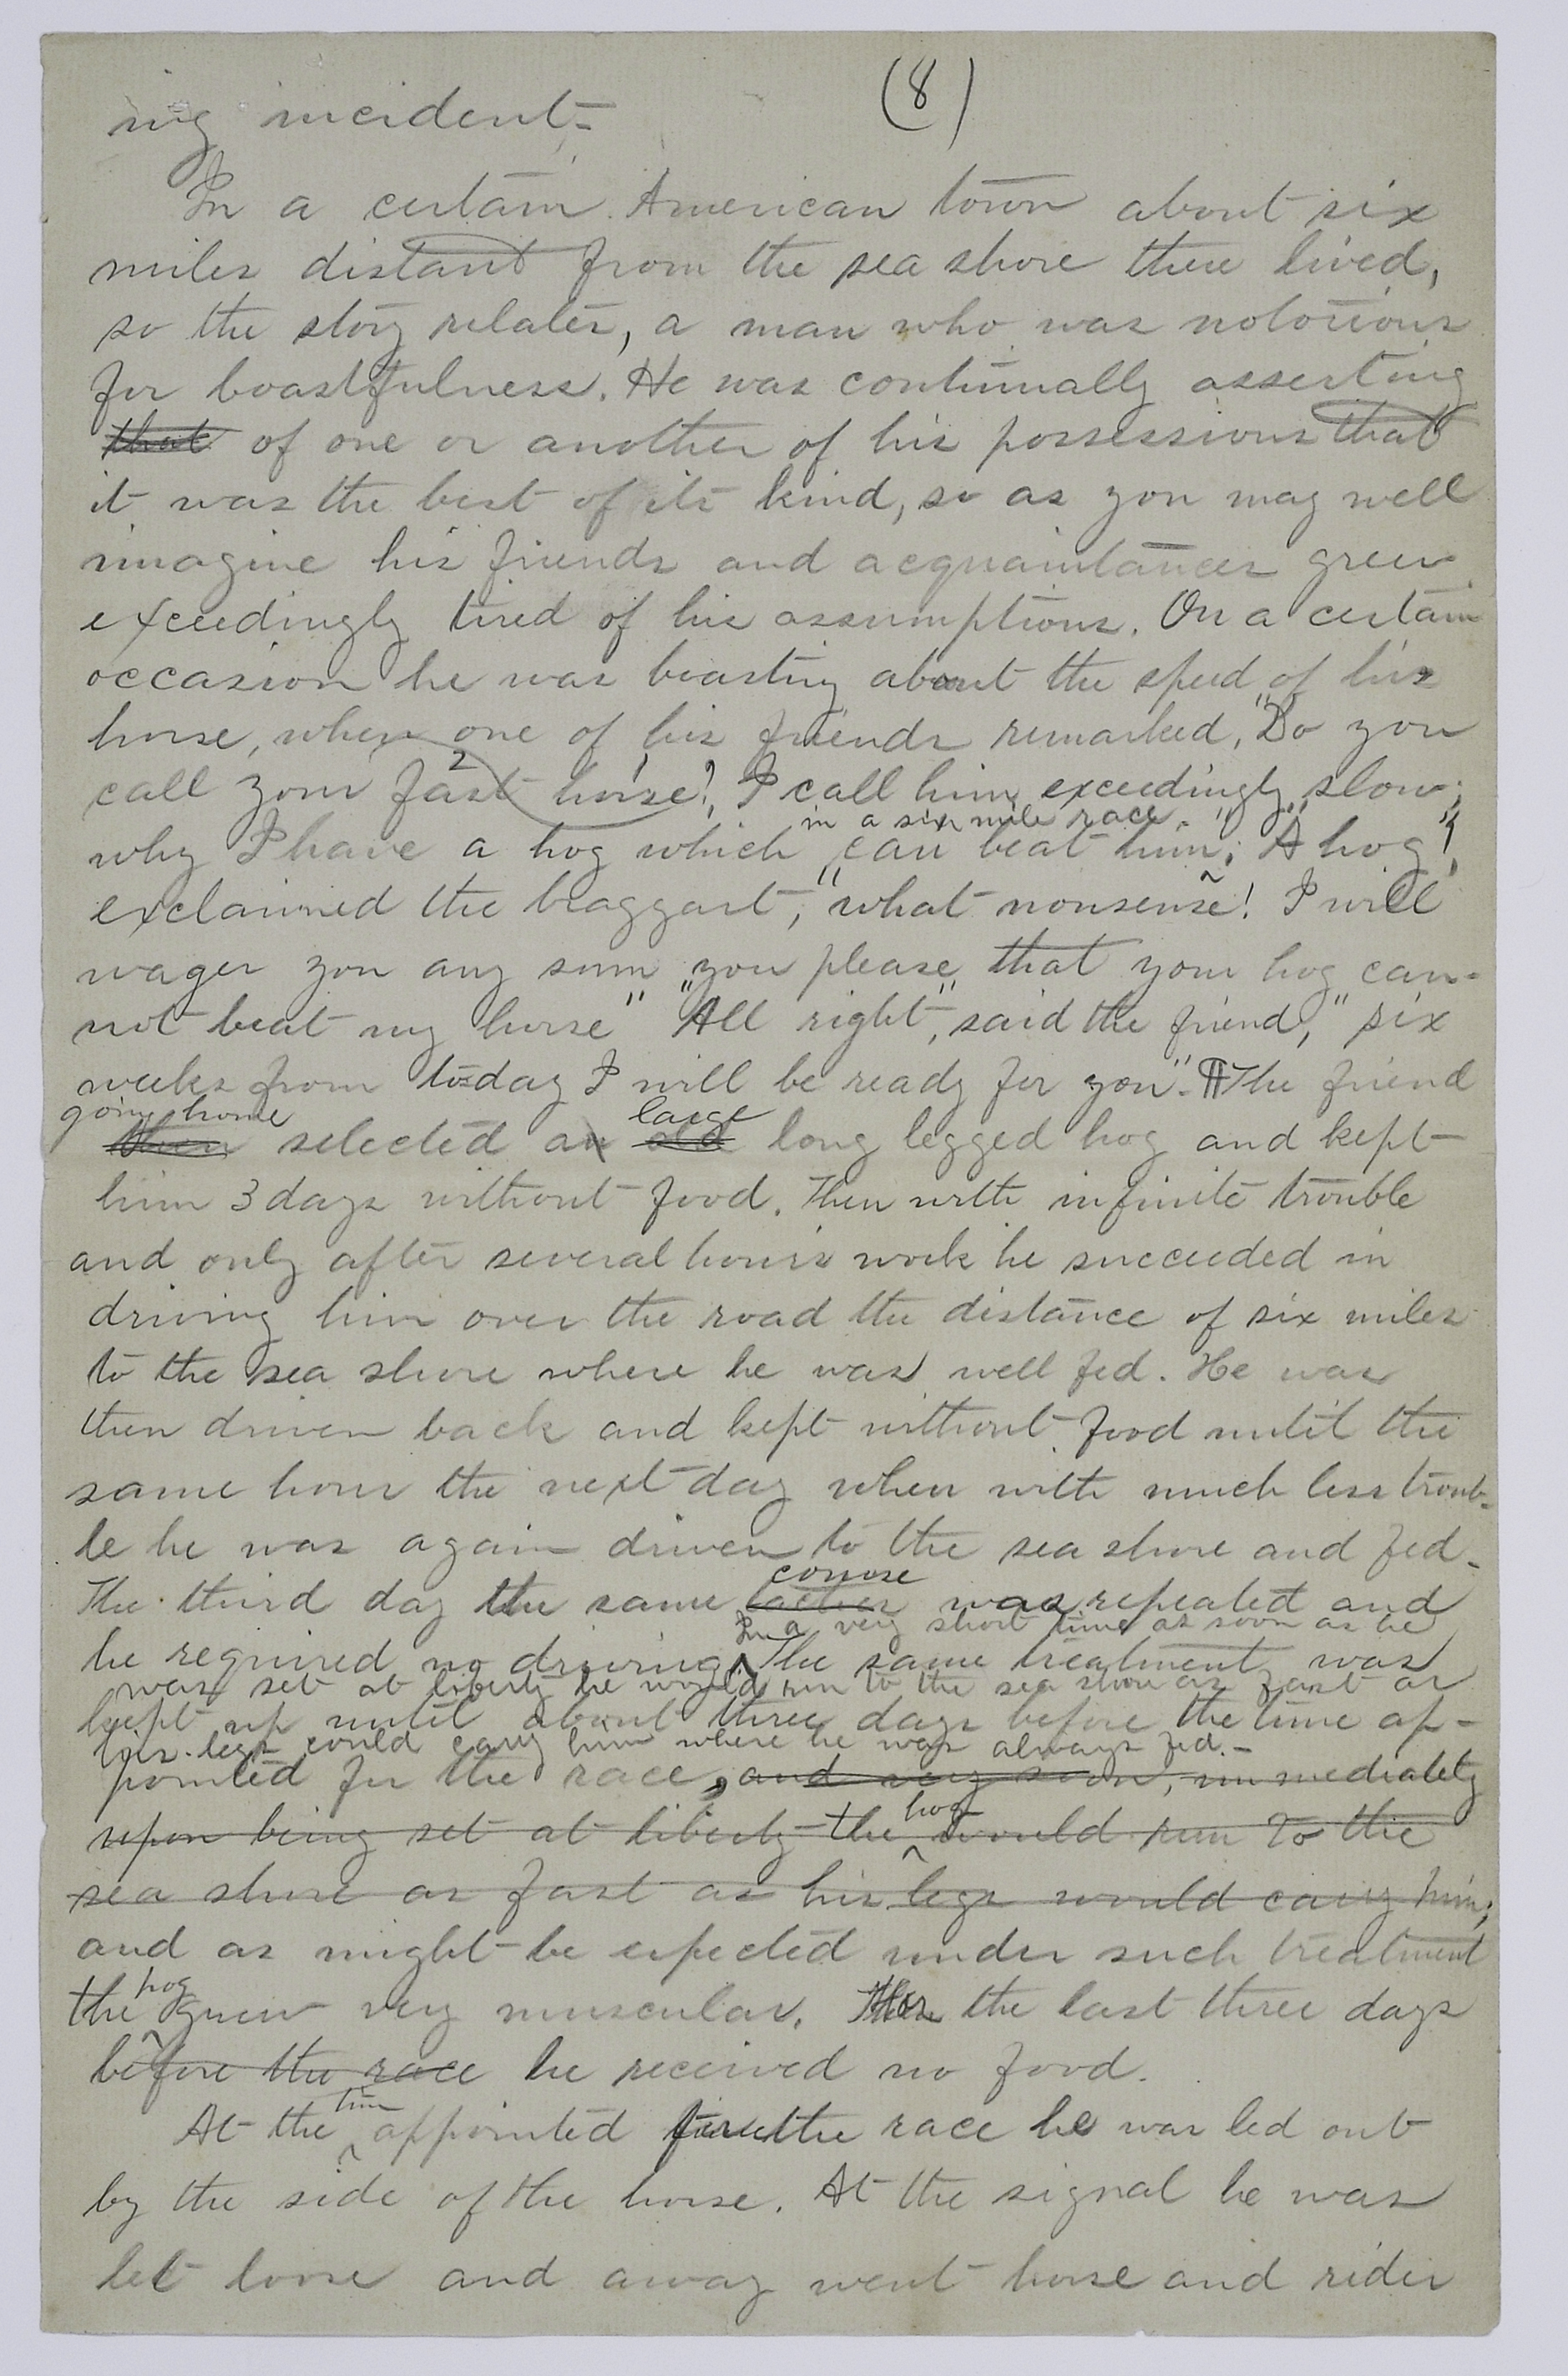 (8)
ing incident-
In a certain American town about six
miles distant from the sea shore there lived,
so the story relates, a man who was notorious
for boastfulness. He was continually asserting
that of one or another of his possessions that
it was the best of its kind, so as you may well
imagine his friends and acquaintances grew
exceedingly tired of his assumptions. On a certain
occasion he was boasting about the speed of his
horse, when one of his friends remarked, "Do you
call your fast horse! I call him exceedingly slow;
in a six mile race. "
why I have a hog which can beat him; "A hog"!
exclaimed the braggart, "what nonsense! I will
wager you any sum you please that your hog can-
not beat my horse" "All right", said the friend, "six
weeks from to-day I will be ready for you". ¶The friend
going home large
then selected an old long legged hog and kept
him 3 days without food. Then with infinite trouble
and only after several hours work he succeeded in
driving him over the road the distance of six miles
to the sea shore where he was well fed. He was
then driven back and kept without food until the
same hour the next day when with much less troub-
le he was again driven to the sea shore and fed-
course
The third day the same was repeated and
In a very short time as soon as he
he required no driving. The same treatment was
was set at liberty he would run to the sea shore as fast as
kept up until about three days before the time ap-
his legs could carry him where he was always fed.-
pointed for the race, and very soon, immediately
hog
upon being set at liberty the would run to the
sea shore as fast as his legs would carry him;
and as might be expected under such treatment
hog
the grew very muscular. the last three days
before the race he received no food.
time
At the appointed for the race he was led out
by the side of the horse. At the signal he was
let loose and away went horse and rider